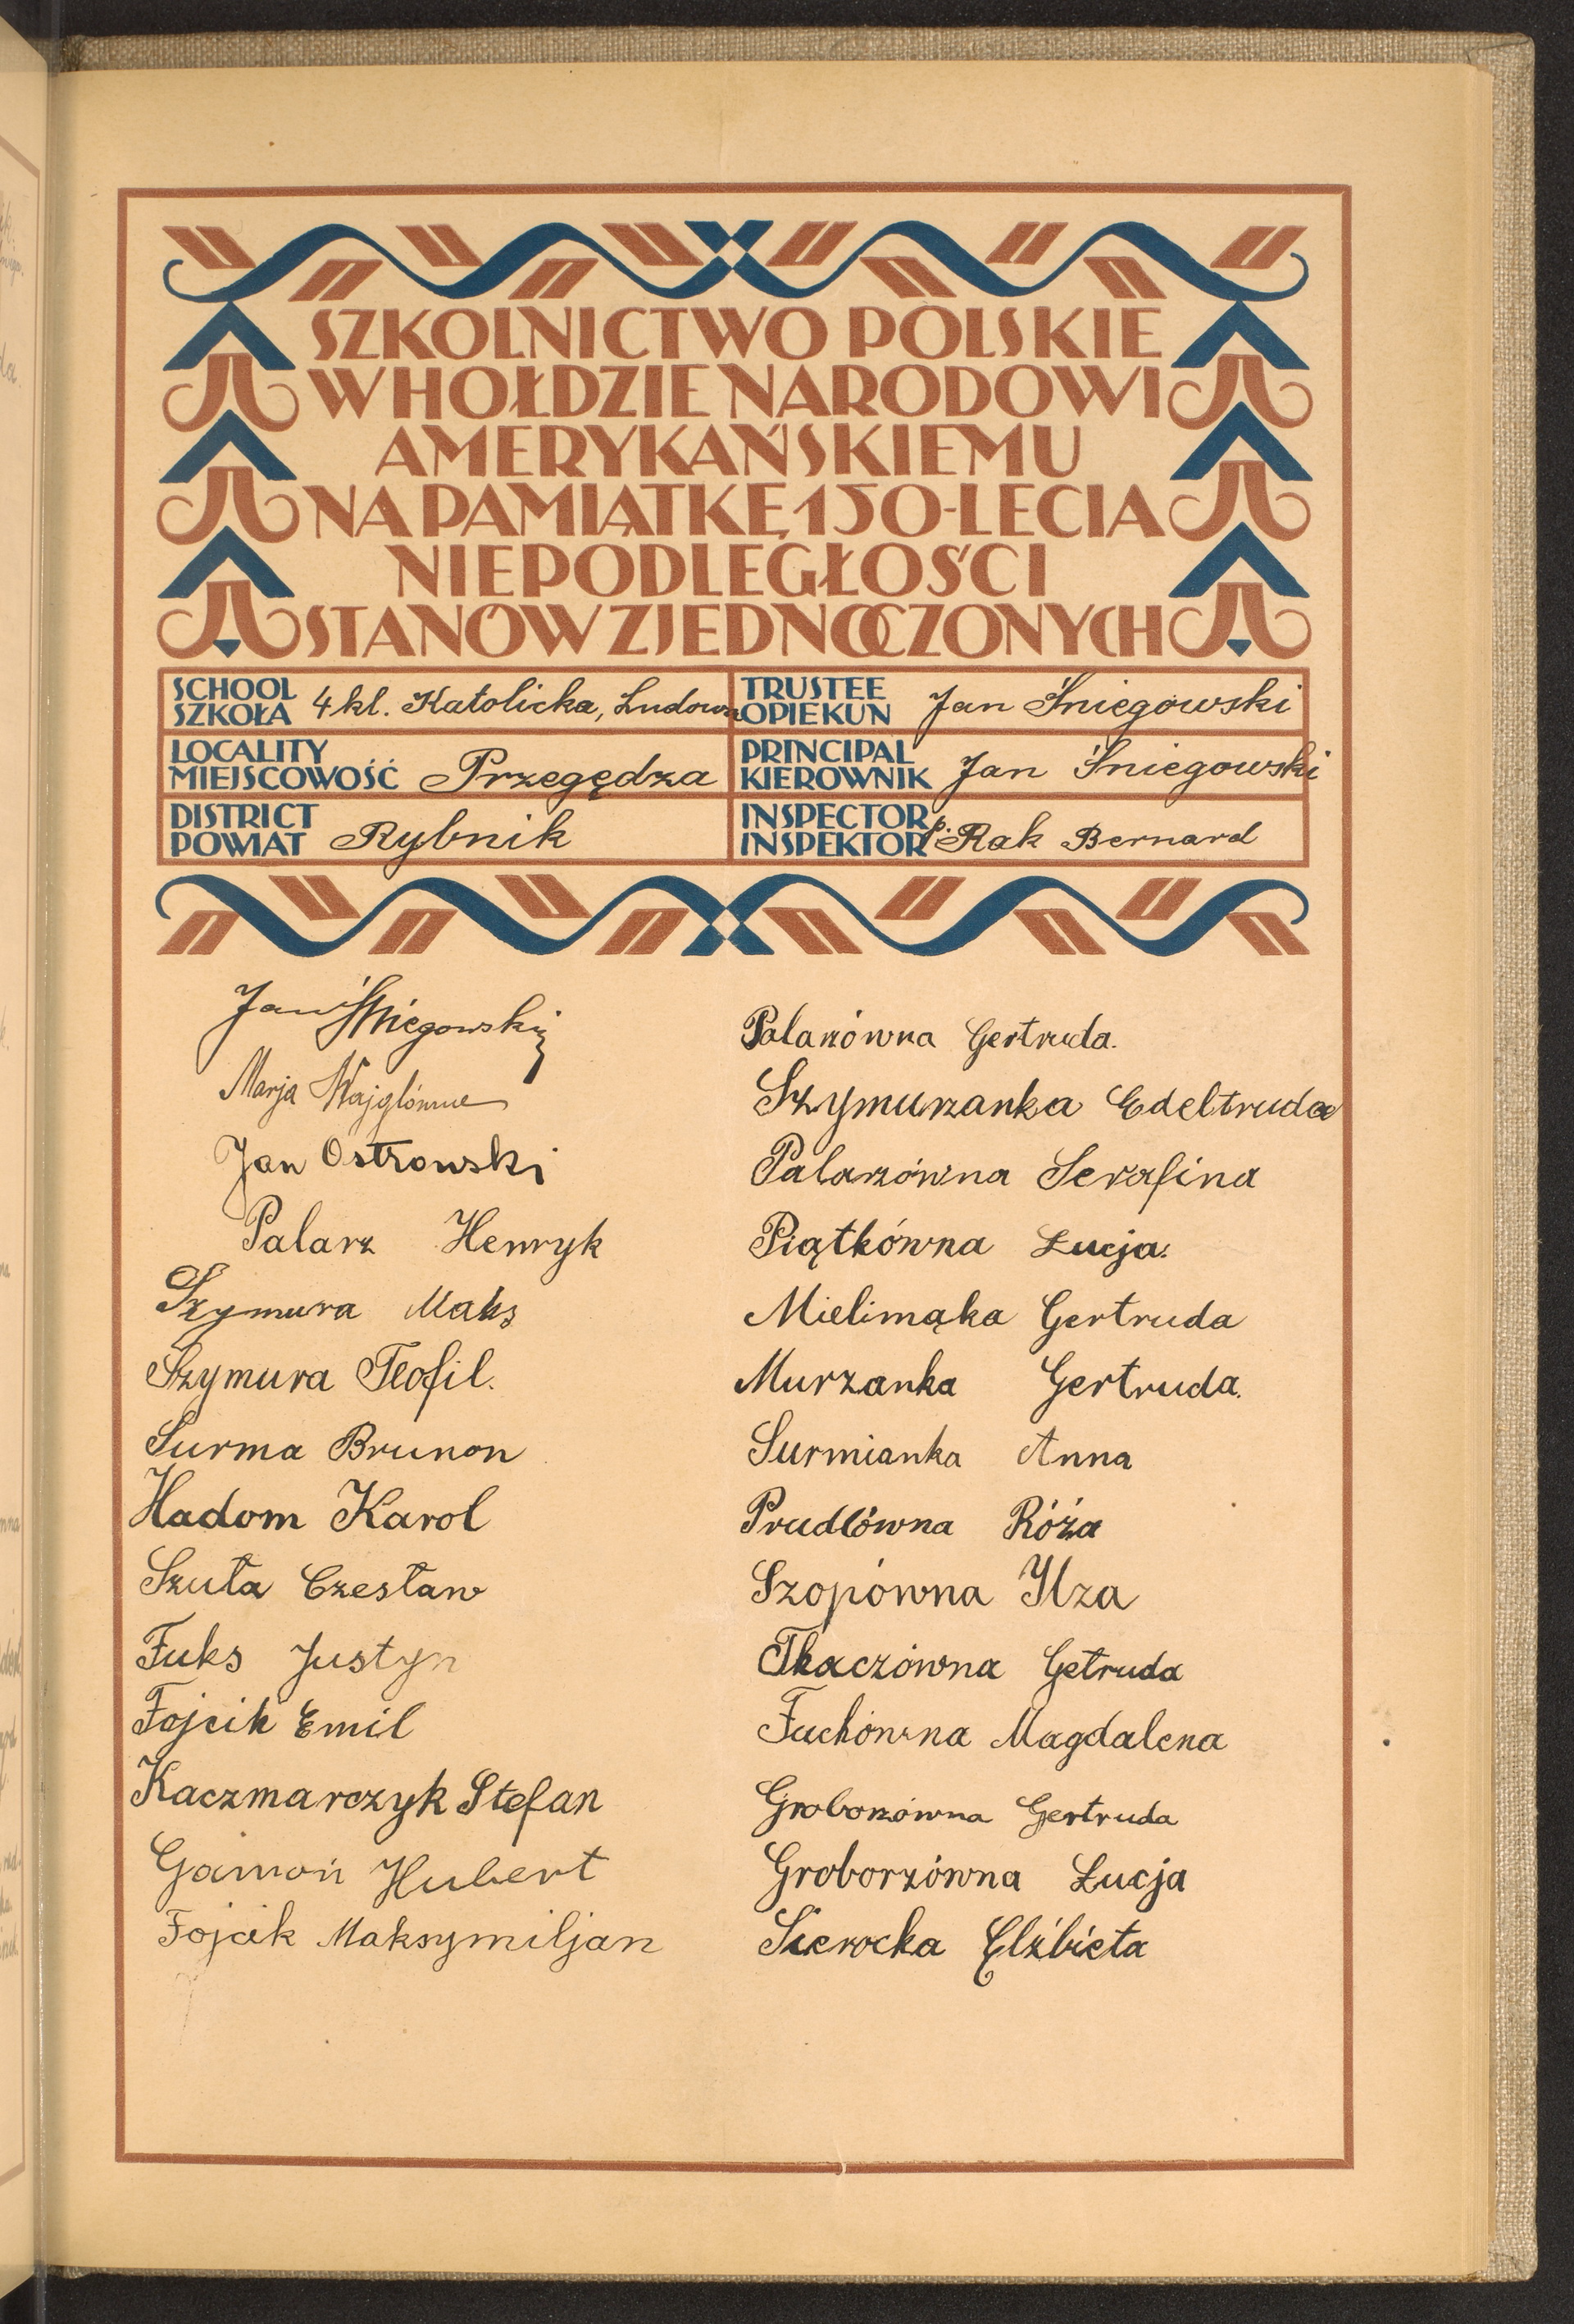 SZKOLNICTWO POLSKIE
W HOŁDZIE NARODOWI
AMERYKAŃSKIEMU
NA PAMIĄTKĘ 150-LECIA
NIEPODLEGŁOŚCI
STANÓW ZJEDNOCZONYCH
SCHOOL
SZKOŁA 4 kl. Katolicka, Ludowa
TRUSTEE
OPIEKUN Jan Śniegowski
LOCALITY
MIEJSCOWOŚĆ Przegędza
PRINCIPAL
KIEROWNIK Jan Śniegowski
DISTRICT
POWIAT Rybnik
INSPECTOR
INSPEKTOR p. Rak Bernard
Jan Śniegowski
Marja Wajglówna
Jan Ostrowski
Palarz Henryk
Szymura Maks
Szymura Teofil.
Surma Brunon
Hadom Karol
Szuła Czesław
Fuks Justyn
Fojcik Emil
Kaczmarczyk Stefan
Gamoń Hubert
Fojcik Maksymiljan
Palarzówna Gertruda.
Szymurzanka Edeltruda
Palarzówna Serafina
Piątkówna Łucja.
Mielimąka Gertruda
Murzanka Gertruda.
Surmianka Anna
Prudlówna Róża
Szopówna Ilza
Tkaczówna Getruda
Fuchówna Magdalena
Groborzówna Gertruda
Groborzówna Łucja
Sierocka Elżbieta